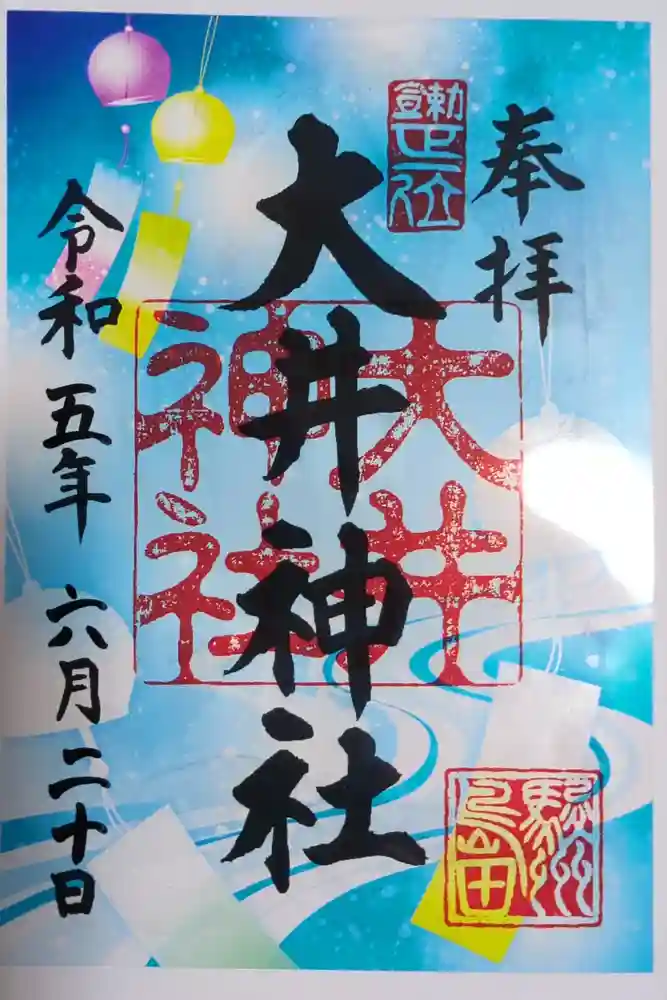 奉拝
勅宣正一位
大井神社
大井
神社
駿州
島田
令和五年六月二十日